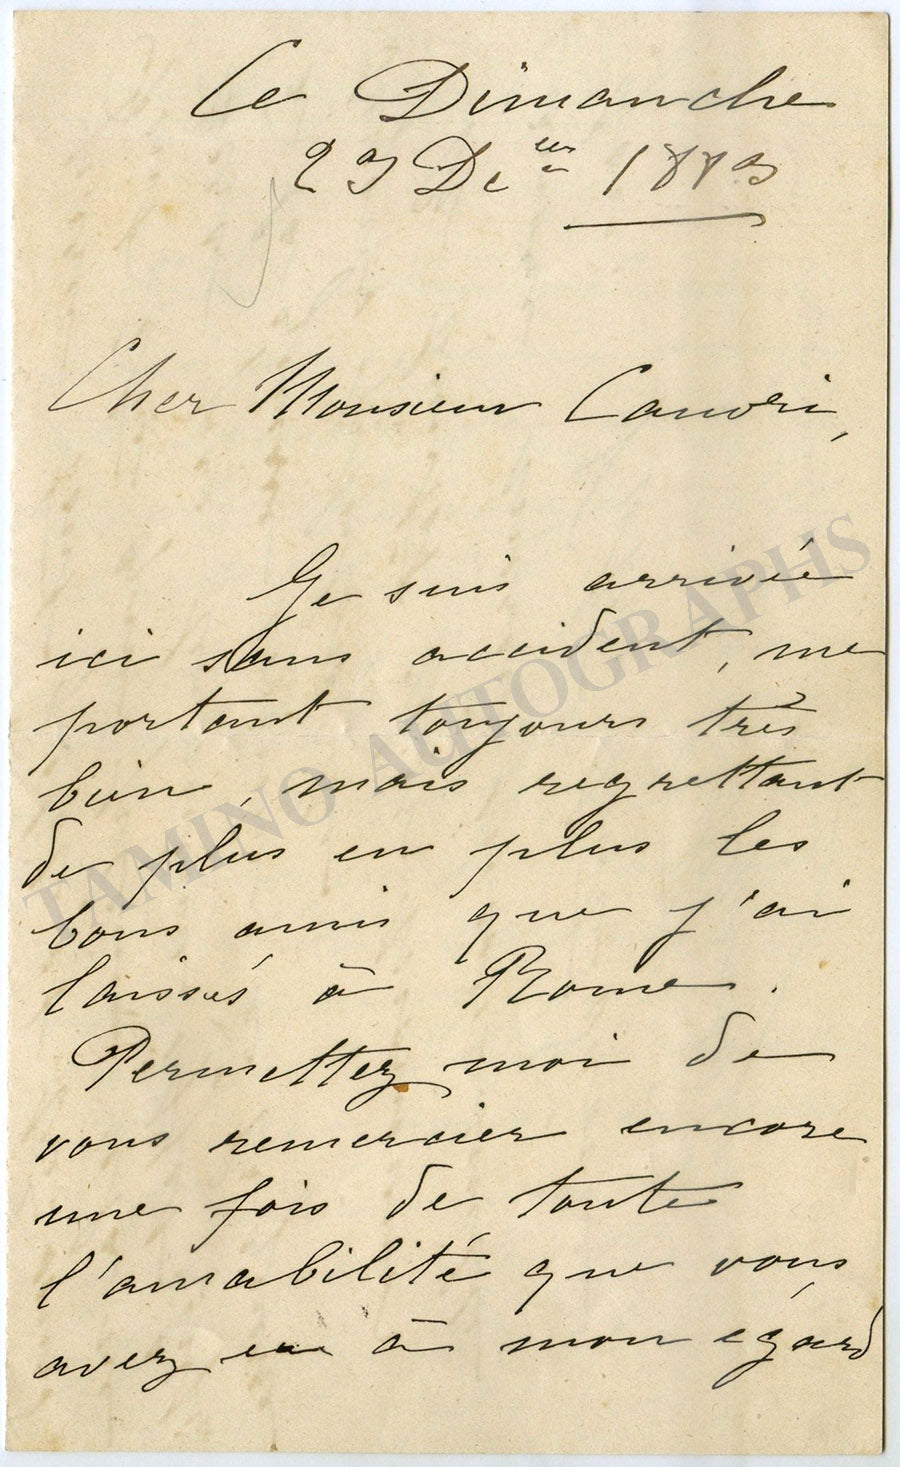 Ce Dimanche
23 De 1883
Cher Monsieur
Je suis arrivée
ici sans accident, me
portant toujours très
bien, mais regrettant
de plus en plus les
bons amis que j'ai
laissés à Rome.
Permettez moi de
vous remercier encore
une fois de toute
l'amabilité que vous
avez eu à mon égard
TAMINO AUTOGRAPHS